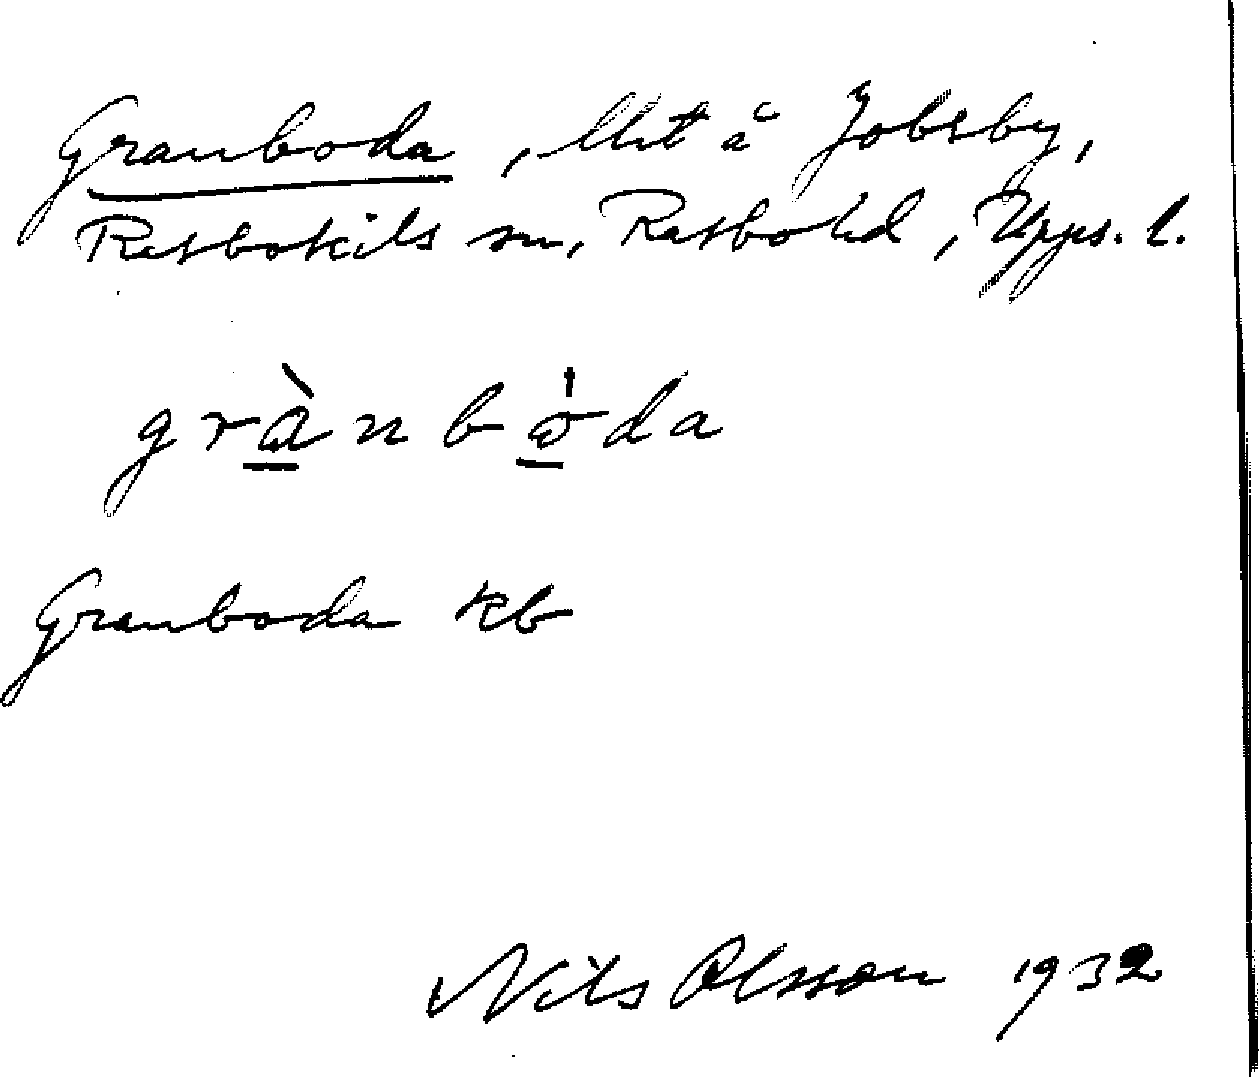 Granboda, llht å Jobsby,
Rasbokils sn, Rasbo hd, Upps. l.
grànbo̍da
Granboda kb
Nils Olsson 1932